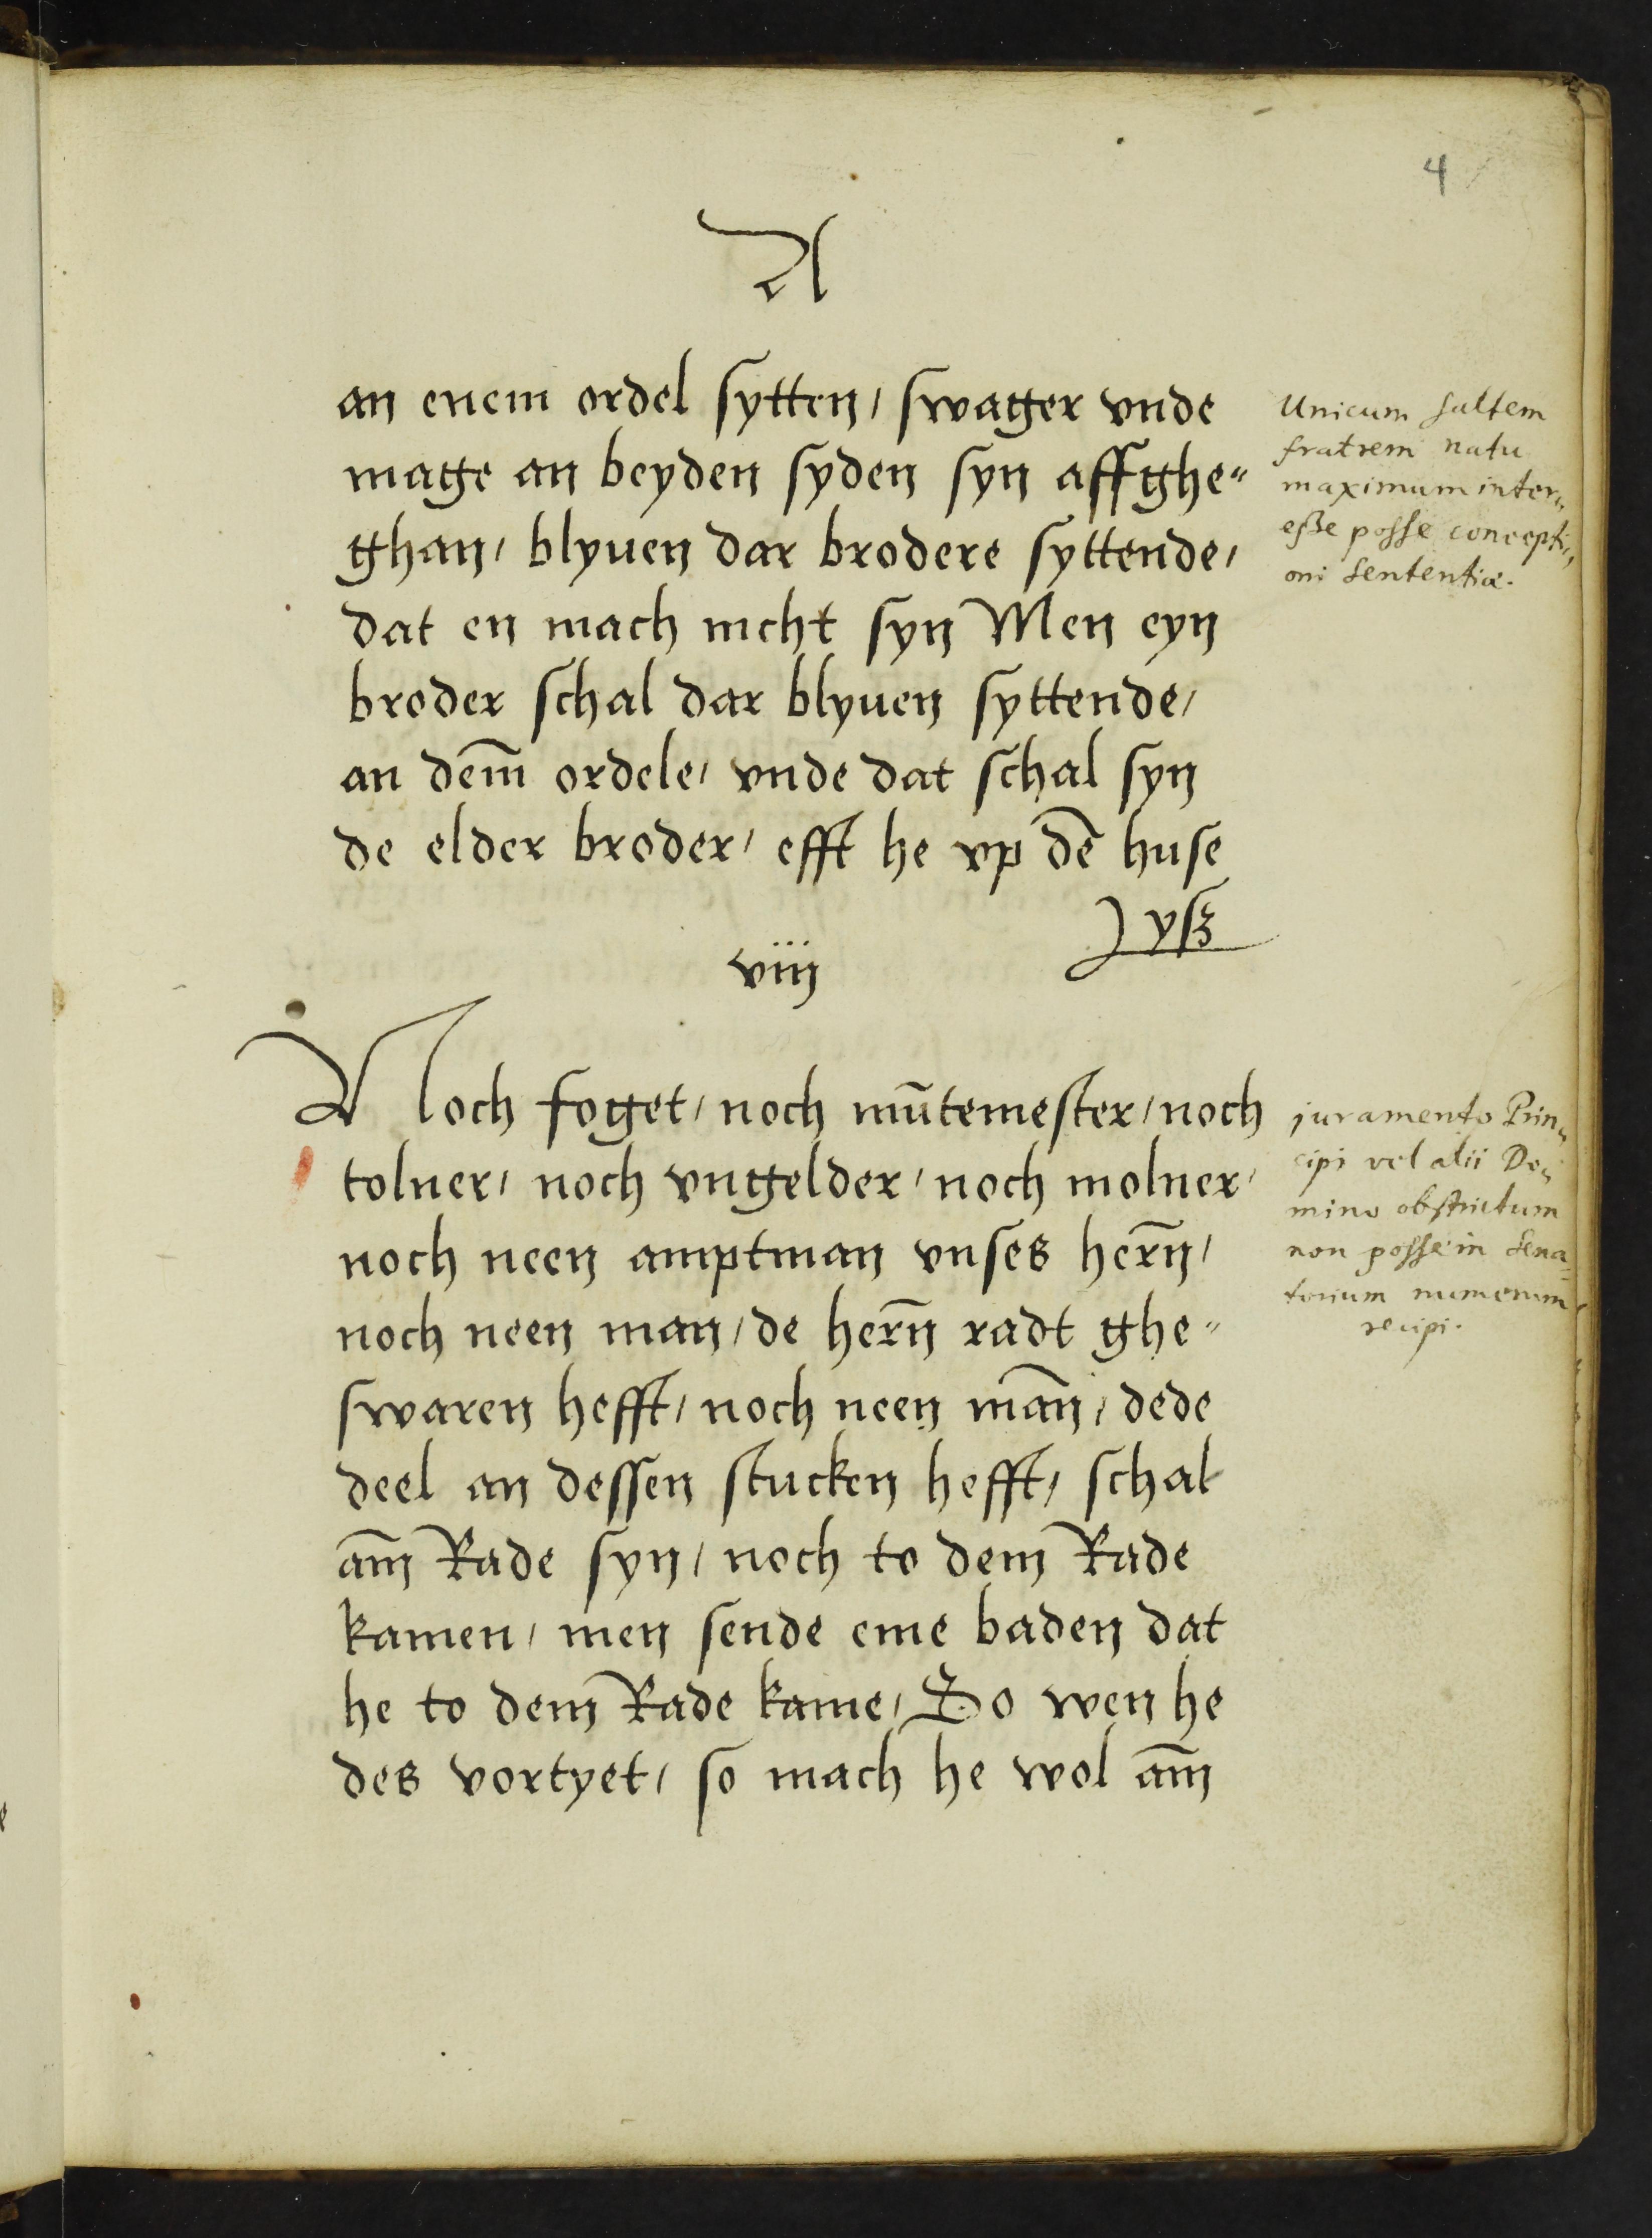 4
A
an enem ordel sytten / swager vnde
mage an beyden syden syn affghe"
ghan / blyuen dar brodere syttende /
dat en mach nicht syn Men eyn
broder schal dar blyuen syttende /
an dem̄ ordele / vnde dat schal syn
de elder broder / efft he vp dē huse
ysz
Unicum saltem
fratrem natu
maximum inter„
eße posse concepti„
oni sententiæ.
viij
Noch foget / noch mūtemester / noch
tolner / noch vngelder / noch molner /
noch neen amptman vnses hern̄ /
noch neen man / de hern̄ radt ghe"
swaren hefft / noch neen man̄ / dede
deel an dessen stucken hefft / schal
am̄ Rade syn / noch to dem Rade
kamen / men sende eme baden dat
he to dem Rade kame / So wen he
des vortyet / so mach he wol am̄
juramento Prin„
cipi vel alii Do„
mino obstrictum
non posse in Sena=
torium numerum
recipi.